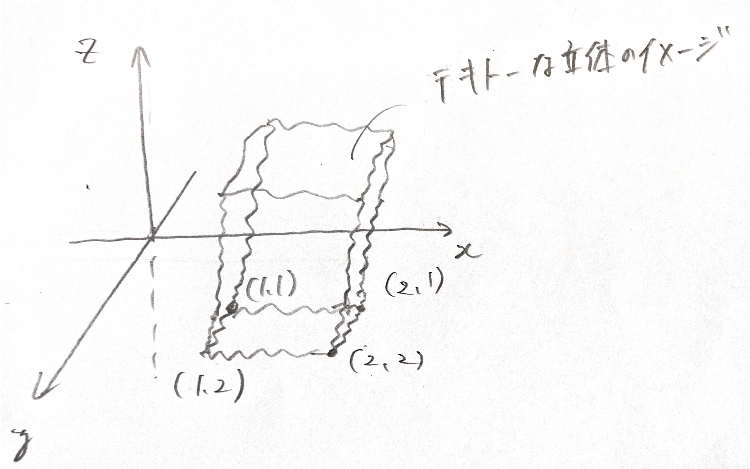 z
テキトーな立体のイメージ
x
(1,1)
(2,1)
(1,2)
(2,2)
y